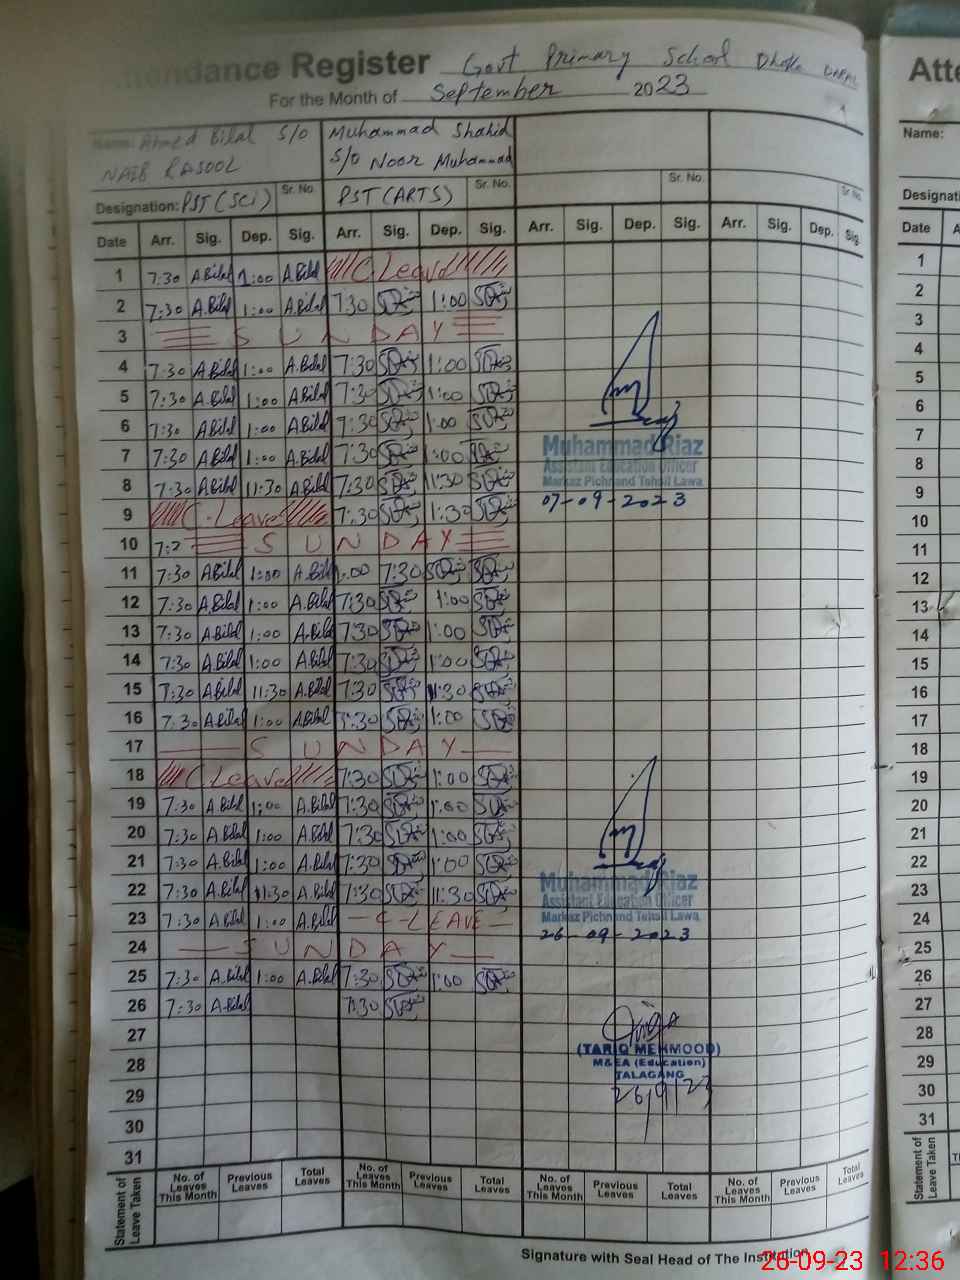 Attendance Register Govt Primary School Dhoke
For the Month of September 2023
Name: Ahmed Bilal S/O Muhammad Shahid
NAIB RASOOL S/O Noor Muhammad
Sr. No. Sr. No. Sr. No. Sr. No.
Designation: PST (SCi) PST (ARTS)
Date Arr. Sig. Dep. Sig. Arr. Sig. Dep. Sig. Arr. Sig. Dep. Sig. Arr. Sig. Dep. Sig.
1 7:30 A.Bilal 1:00 A.Bilal C Leave
2 7:30 A.Bilal 1:00 A.Bilal 7:30 1:00
3 SUNDAY
4 7:30 A.Bilal 1:00 A.Bilal 7:30 1:00
5 7:30 A.Bilal 1:00 A.Bilal 7:30 1:00
6 7:30 A.Bilal 1:00 A.Bilal 7:30 1:00
7 7:30 A.Bilal 1:00 A.Bilal 7:30 1:00
8 7:30 A.Bilal 11:30 A.Bilal 7:30 11:30
9 C-Leave 7:30 1:30
10 7:2 SUNDAY
11 7:30 A.Bilal 1:00 A.Bilal 1:00 7:30
12 7:30 A.Bilal 1:00 A.Bilal 7:30 1:00
13 7:30 A.Bilal 1:00 A.Bilal 7:30 1:00
14 7:30 A.Bilal 1:00 A.Bilal 7:30 1:00
15 7:30 A.Bilal 11:30 A.Bilal 7:30 11:30
16 7:30 A.Bilal 1:00 A.Bilal 7:30 1:00
17 SUNDAY
18 C Leave 7:30 1:00
19 7:30 A.Bilal 1:00 A.Bilal 7:30 1:00
20 7:30 A.Bilal 1:00 A.Bilal 7:30 1:00
21 7:30 A.Bilal 1:00 A.Bilal 7:30 1:00
22 7:30 A.Bilal 11:30 A.Bilal 7:30 11:30
23 7:30 A.Bilal 1:00 A.Bilal C-LEAVE
24 SUNDAY
25 7:30 A.Bilal 1:00 A.Bilal 7:30 1:00
26 7:30 A.Bilal 7:30
27
28
29
30
31
Muhammad Riaz
Assistant Education Officer
Markaz Pichnand Tehsil Lawa
07-09-2023
Muhammad Riaz
Assistant Education Officer
Markaz Pichnand Tehsil Lawa
26-09-2023
(TARIQ MEHMOOD)
M&EA (Education)
TALAGANG
26/9/23
Statement of Leave Taken
No. of Leaves This Month Previous Leaves Total Leaves No. of Leaves This Month Previous Leaves Total Leaves No. of Leaves This Month Previous Leaves Total Leaves No. of Leaves This Month Previous Leaves Total Leaves
Signature with Seal Head of The Institution
Atte
Name:
Designati
Date A
1
2
3
4
5
6
7
8
9
10
11
12
13
14
15
16
17
18
19
20
21
22
23
24
25
26
27
28
29
30
31
Statement of Leave Taken
26-09-23 12:36